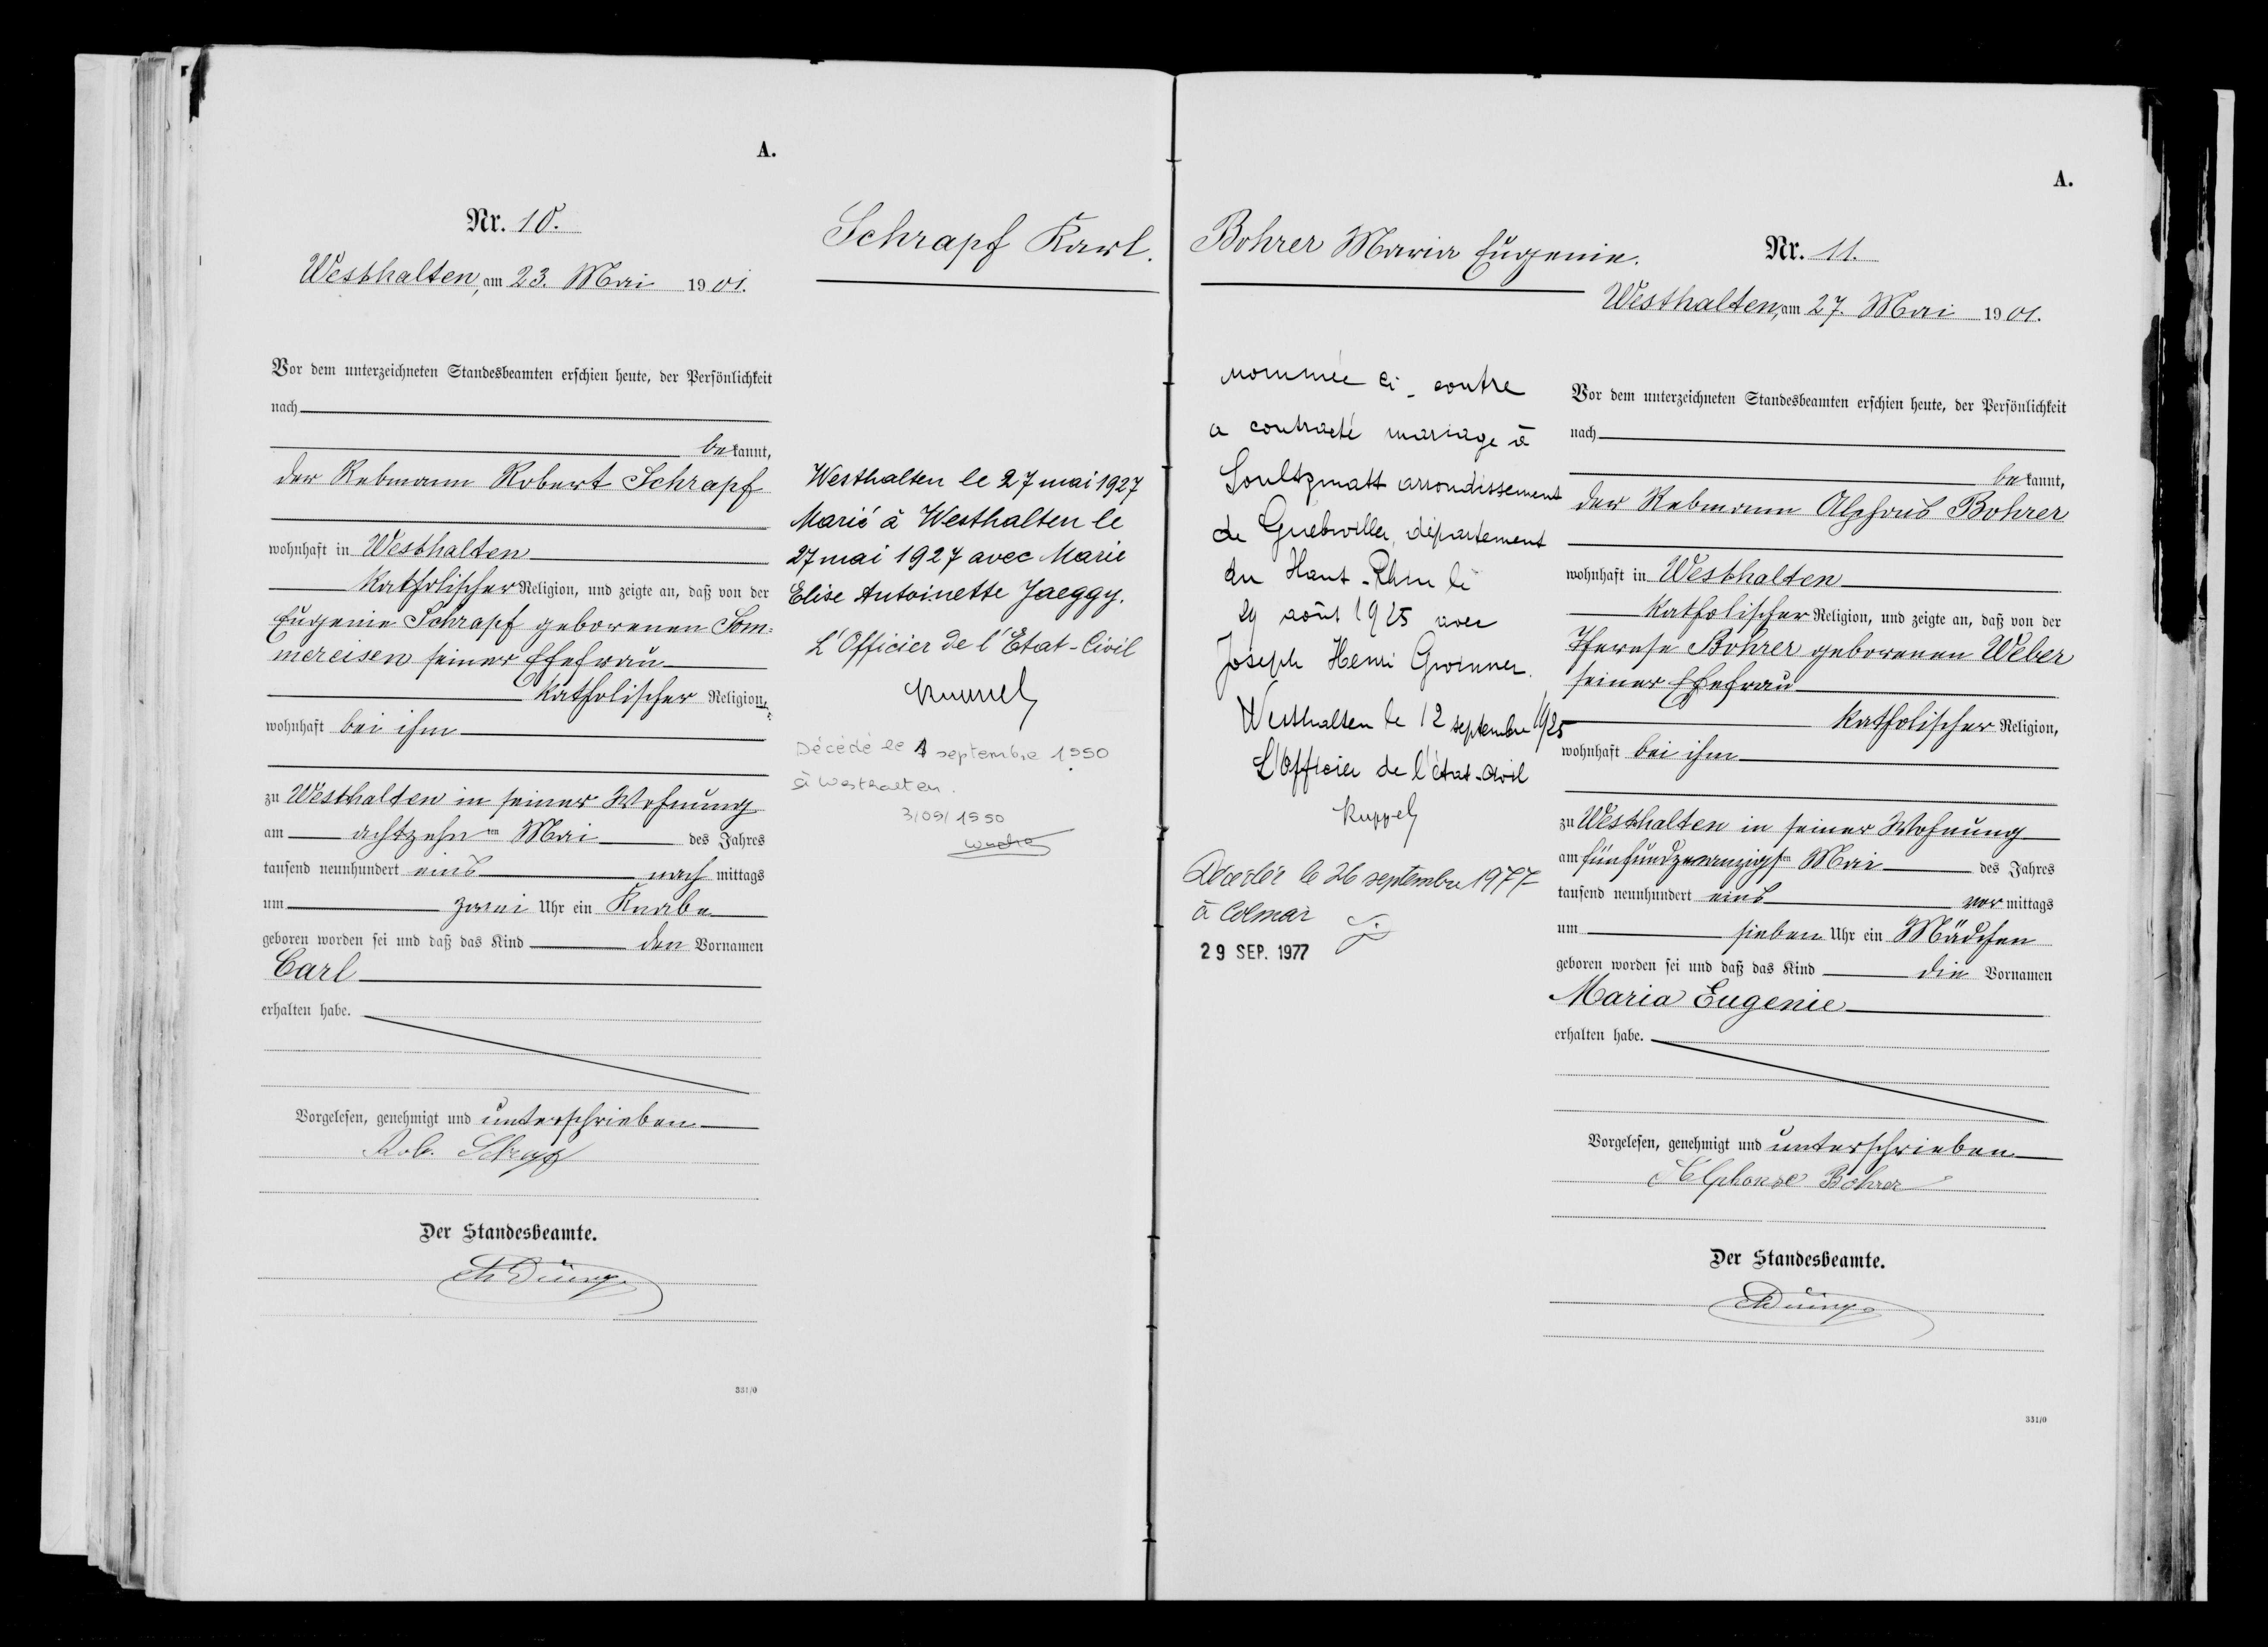 A.
Nr. 10.
Westhalten, am 23. Mai 1901.
Vor dem unterzeichneten Standesbeamten erschien heute, der Persönlichkeit
nach
bekannt,
der Rebmann Robert Schrapf
wohnhaft in Westhalten
katholischer Religion, und zeigte an, daß von der
Eugenie Schrapf geborenen Som-
mereisen seiner Ehefrau
katholischer Religion,
wohnhaft bei ihm
zu Westhalten in seiner Wohnung
am achtzehnten Mai des Jahres
tausend neunhundert eins nach mittags
um zwei Uhr ein Knabe
geboren worden sei und daß das Kind den Vornamen
Carl
erhalten habe.
Vorgelesen, genehmigt und unterschrieben
Rob. Schrapf
Der Standesbeamte.
331/0
Schrapf Karl.
Westhalten le 27 mai 1927
Marié à Westhalten le
27 mai 1927 avec Marie
Elise Antoinette Jaeggy.
L'Officier de l'Etat-Civil
Décédé le 1 septembre 1950
à Westhalten.
3/09/1950
Bohrer Maria Eugenie.
nommée ci-contre
a contracté mariage à
Soultzmatt arrondissement
de Guebwiller, département
du Haut-Rhin le
29 août 1925 avec
Joseph Henri
Westhalten le 12 septembre 1925
L'Officier de l'état-civil
Ruppel
Décédée le 26 septembre 1977
à Colmar
29 SEP. 1977
A.
Nr. 11.
Westhalten, am 27. Mai 1901.
Vor dem unterzeichneten Standesbeamten erschien heute, der Persönlichkeit
nach
bekannt,
der Rebmann Alphons Bohrer
wohnhaft in Westhalten
katholischer Religion, und zeigte an, daß von der
Therese Bohrer geborenen Weber
seiner Ehefrau
katholischer Religion,
wohnhaft bei ihm
zu Westhalten in seiner Wohnung
am fünfundzwanzigsten Mai des Jahres
tausend neunhundert eins vor mittags
um sieben Uhr ein Mädchen
geboren worden sei und daß das Kind die Vornamen
Maria Eugenie
erhalten habe.
Vorgelesen, genehmigt und unterschrieben
Alphonse Bohrer
Der Standesbeamte.
331/0